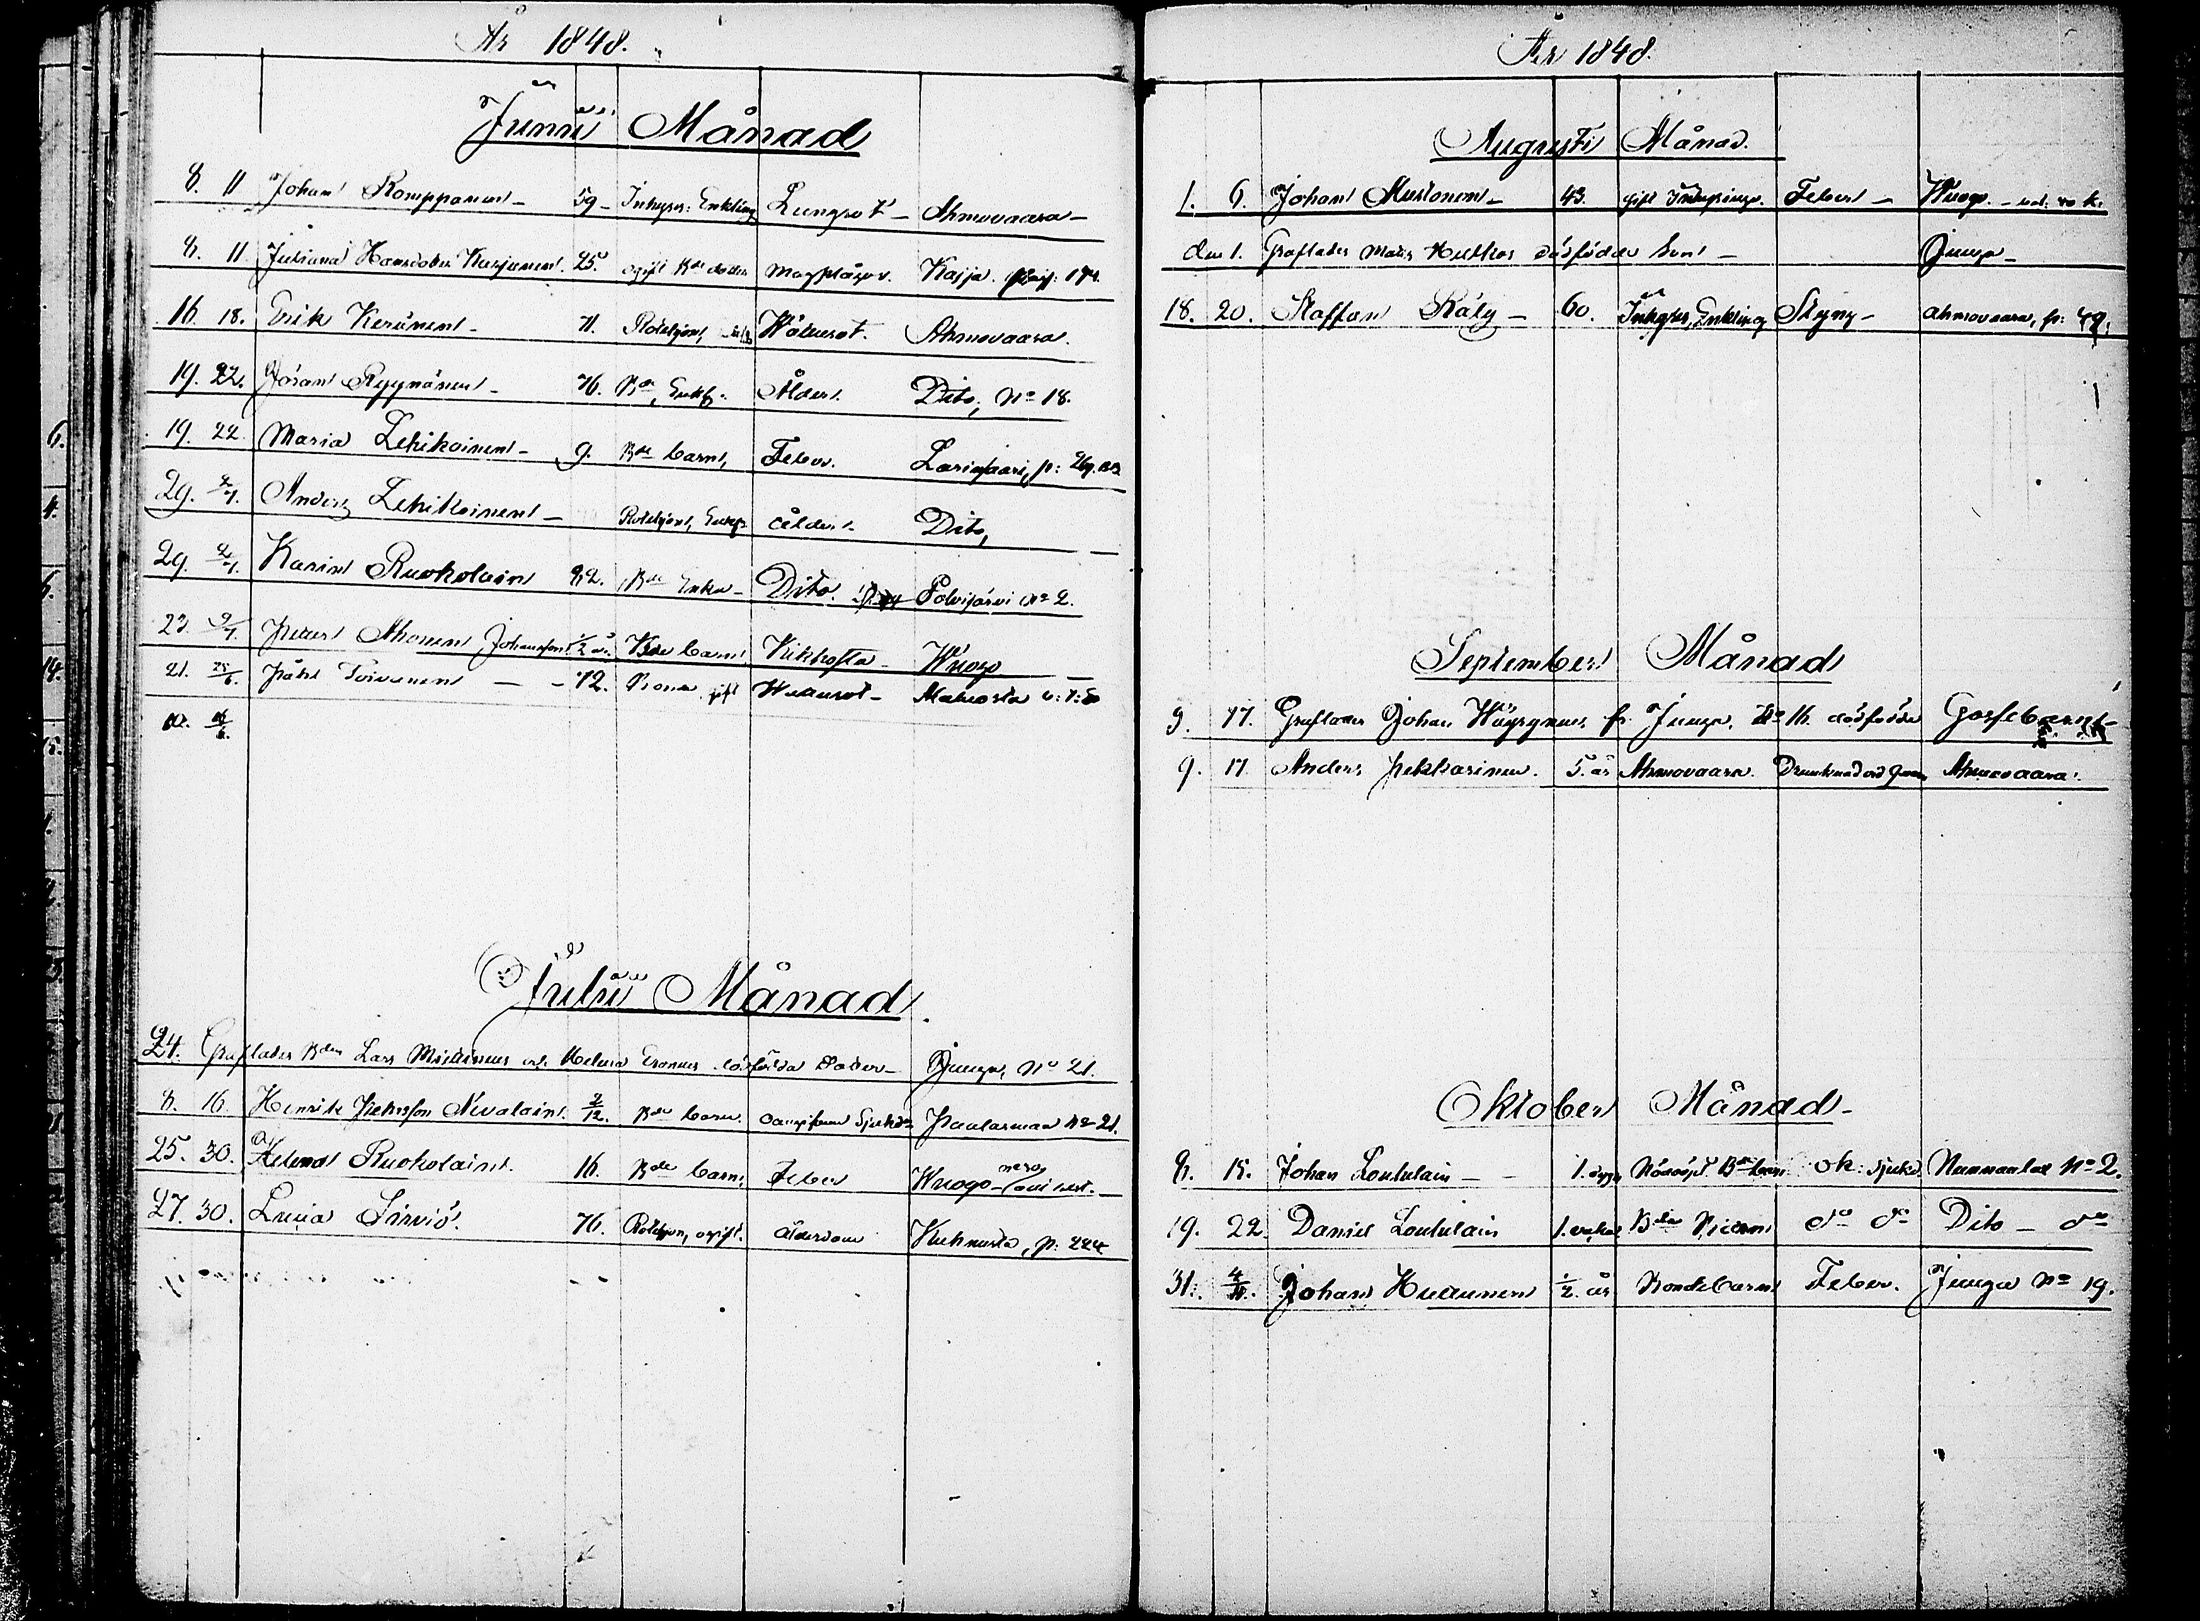 År 1848.
Junii Månad
8. 11 Johan Romppanen - 59 - Inhyses: Enkling Lungsot - Ahmovaara -
8. 11. Juliana Hansdotter Karjunen. 25. ogift Bde dotter Kajja.
16. 18. Erik Keränen - 71. Rotehjon, Wattusot. Ahmovaara.
19. 22. Jöran Ryynänen - 76. Bde, Enkl. Ålder. Dito, No 18.
19. 22. Maria Lehikoinen - 9. Bde barn, Feber. Larinsaari, p: 269.
29. 2/7. Anders Lehikoinen - Rotehjon, Enkl. ålder. Dito,
29. 2/7. Karin Ruokolain 82. Bde Enka - Dito. Polvijärvi No 2.
23. 2/7. Petter Ahonen Johansson 1/2 år. Bde barn Kikhosta - Kuogo
21. 25/6. Påhl Toivanen - - 72. Bonde gift Wattusot -
10. 16/6.
Julii Månad.
24. Graflades Bden Lars Miettinens och Helena Eronens dödfödda dotter - Junga, No 21.
8. 16. Henrik Pehrsson Nevalain. 2/12. Bde barn. Sjukdom Paularinmaa No 21.
25. 30. Helena Ruokolain. 16. Bde barn. Feber Kuogo -
27. 30. Lucia Sirviö. 76. Rotehjon, ogift. ålderdom p: 224
År 1848.
Augusti Månad.
1. 6. Johan Mustonen - 43. gift Inhysing. Feber - Kuogo. -
den 1. Graflades Matts dödfödde Son - Junga -
18. 20. Staffan Räty - 60. Inhyses, Enkling Styng - Ahmovaara, p: 49.
September Månad
9. 17. Graflades Johan Wäyrynens fr. Junga No 16. dödfödda Gossebarn -
9. 17. Anders Pekkarinen. 5. år Ahmovaara. Ahmovaara.
Oktober Månad -
8. 15. Johan Loutulain - - 1. dygn Nöddöpt Bde barn ok: sjukd. No 2.
19. 22. Daniel Loutulain 1. vecka Bde do do Dito - do
31. 4/11. Johan Huttunen 1/2. år Bondebarn Feber. Junga No 19.